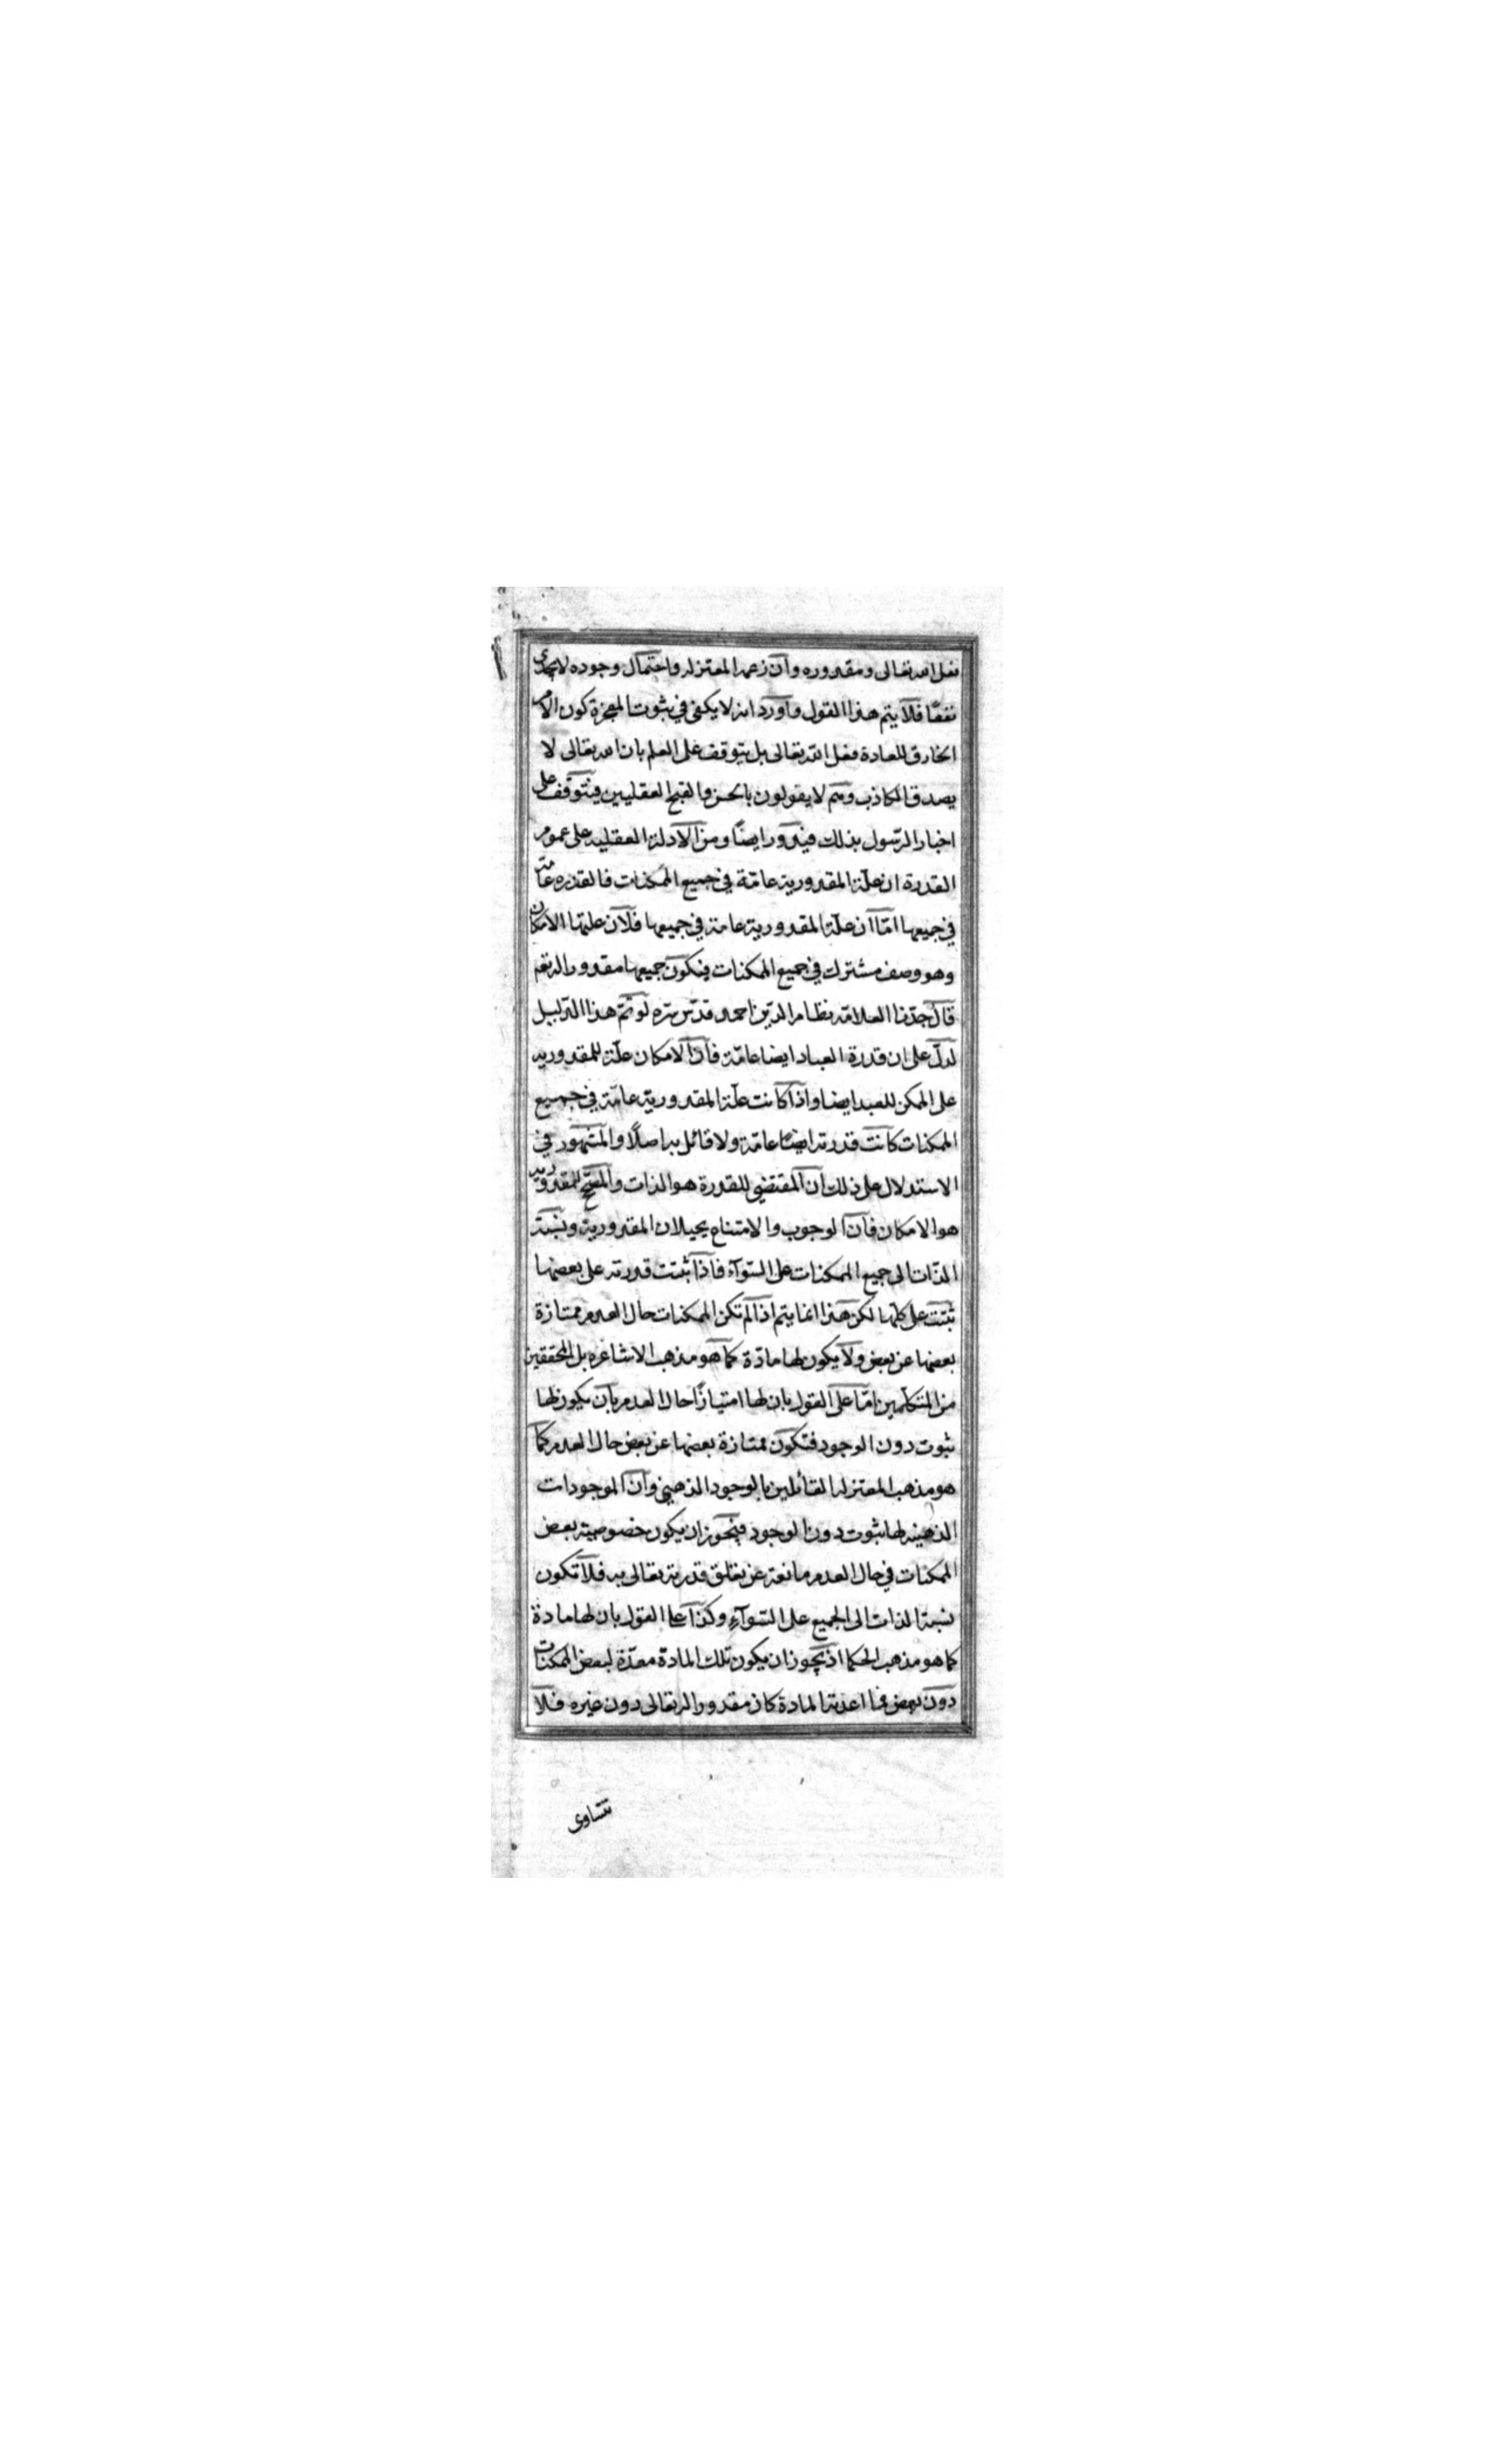 فعل الله تعالى ومقدوره وان زعمه المعتزله واحتمال وجوده لا يجدى
نفعًا فلا يتم هذا القول واورد انه لا يكفى في ثبوت المعجزة كون الامر
الخارق للعادة فعل الله تعالى بل يتوقف على العلم بان الله تعالى لا
يصدق الكاذب وهم لا يقولون بالحسن والقبح العقليين فيتوقف على
اخبار الرسول بذلك فيدور ايضًا ومن الادلة العقليه على عموم
القدرة ان علّة المقدورية عامّة في جميع الممكنات فالقدره عامّة
في جميعها امّا ان علّة المقدورية عامة في جميعها فلان علتها الامكان
وهو وصف مشترك في جميع الممكنات فيكون جميعها مقدورا له تعم
قال جدّنا العلامّه نظام الدّين احمد قدّس سّره لو تمّ هذا الدّليل
لدلّ على ان قدرة العباد ايضا عامّة فان الامكان علّة للمقدوريه
على الممكن للعبد ايضا واذا كانت علّة المقدورية عامّة في جميع
الممكنات كانت قدرته ايضًا عامّة ولا قائل به اصلًا والمشهور في
الاستدلال على ذلك ان المقتضي للقدرة هو الذات والمصحّح للمقدوريه
هو الامكان فان الوجوب والامتناع يحيلان المقدورية ونسبة
الذّات الى جميع الممكنات على السّوآء فاذا ثبتت قدرته على بعضها
ثبتت على كلّها لكن هذا انما يتم اذا لم تكن الممكنات حال العدم ممتازة
بعضها عن بعض ولا يكون لها مادّة كما هو مذهب الاشاعره بل المحققين
من المتكلّمين امّا على القول بان لها امتيازًا حال العدم بان يكون لها
ثبوت دون الوجود فتكون ممتازة بعضها عن بعض حال العدم كما
هو مذهب المعتزله القائلين بالوجود الذهني وان الموجودات
الذهنيه لها ثبوت دون الوجود فيجوز ان يكون خصوصية بعض
الممكنات في حال العدم مانعة عن تعلق قدرته تعالى به فلا تكون
نسبة الذات الى الجميع على السّوآءِ وكذا على القول بان لها مادة
كما هو مذهب الحكما اذ يجوز ان يكون تلك المادة معدّة لبعض الممكنات
دون بعض فما اعدته المادة كان مقدورا له تعالى دون غيره فلا
تتساوى